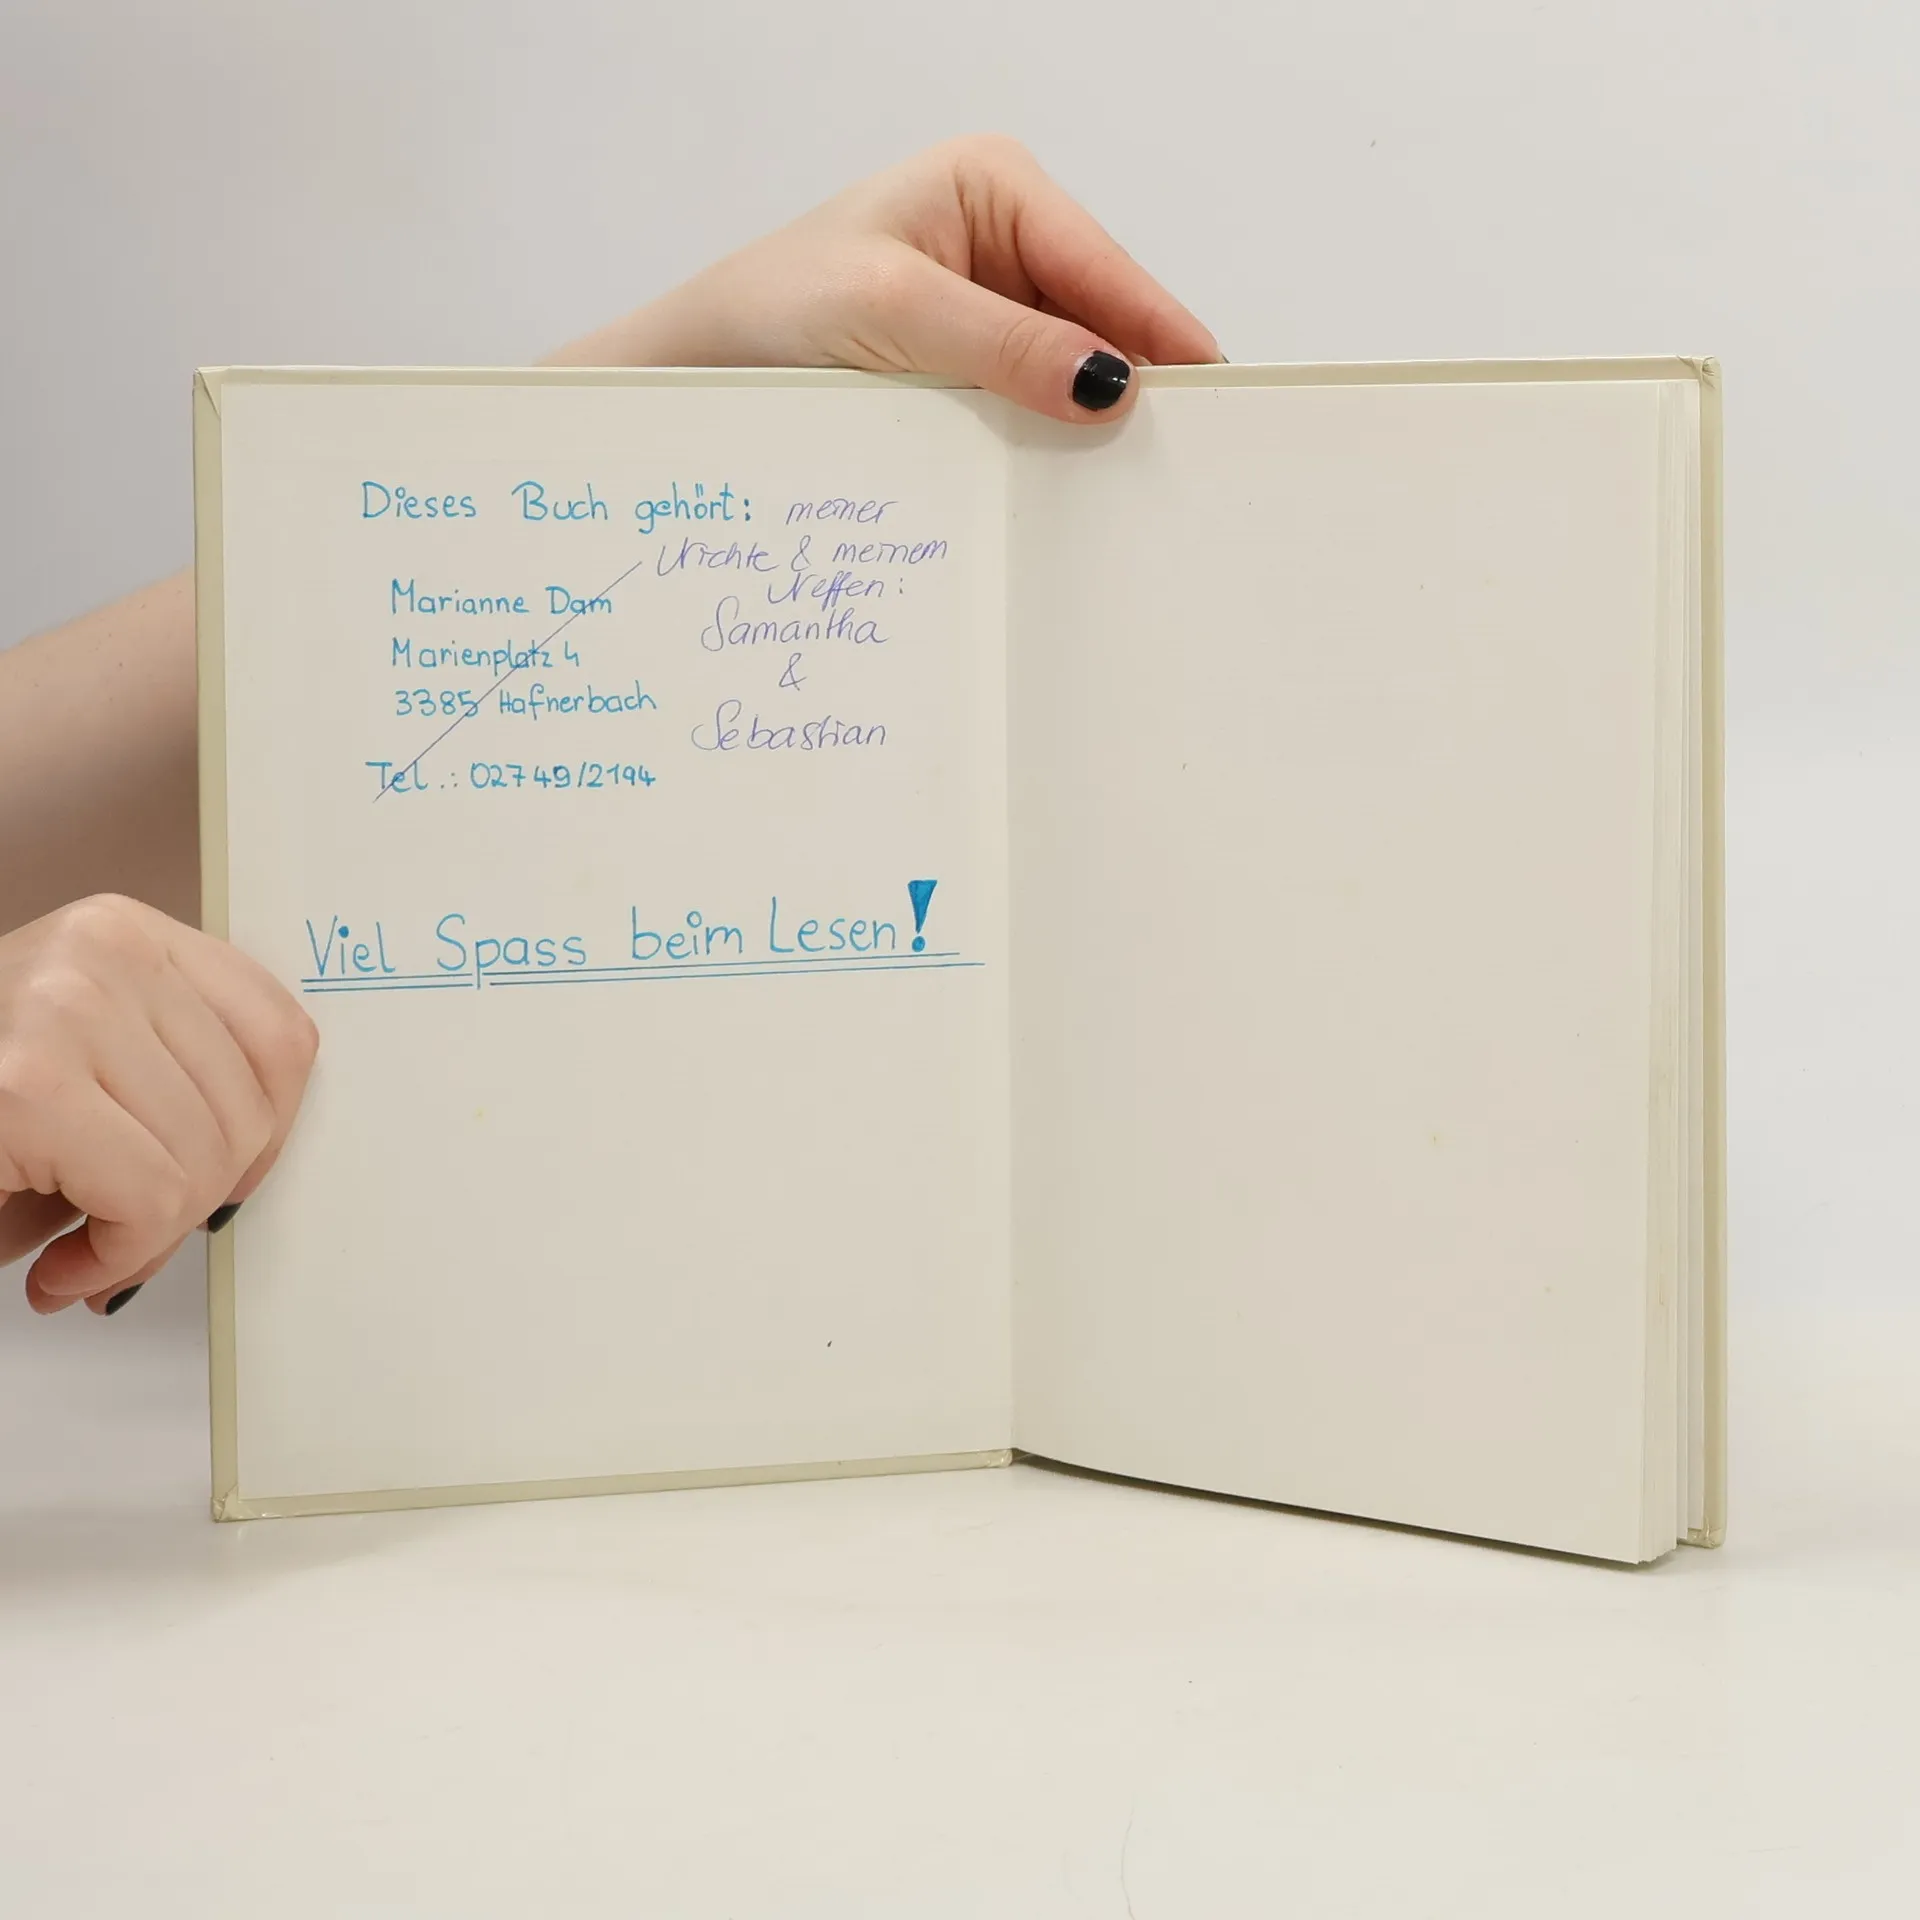 Dieses Buch gehört: meiner
Nichte & meinem
Neffen:
Marianne Dam
Samantha
Marienplatz 4
&
3385 Hafnerbach
Sebastian
Tel.: 02749/2194
Viel Spass beim Lesen!